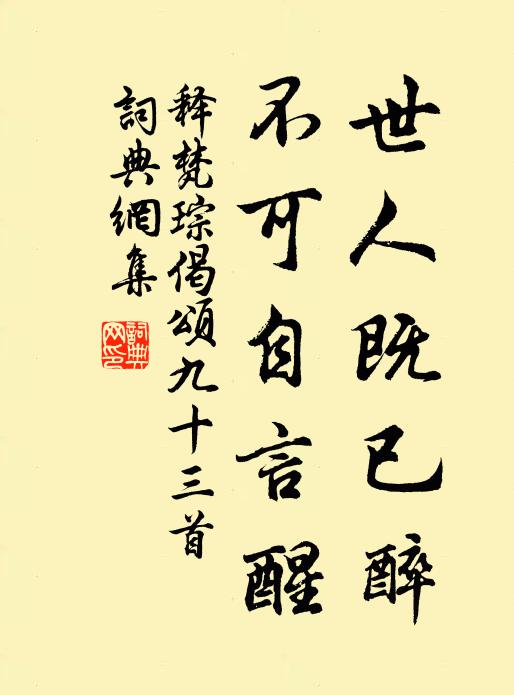 世人既已醉
不可自言醒
释梵琮偈颂九十三首
詞典網集
詞典网印